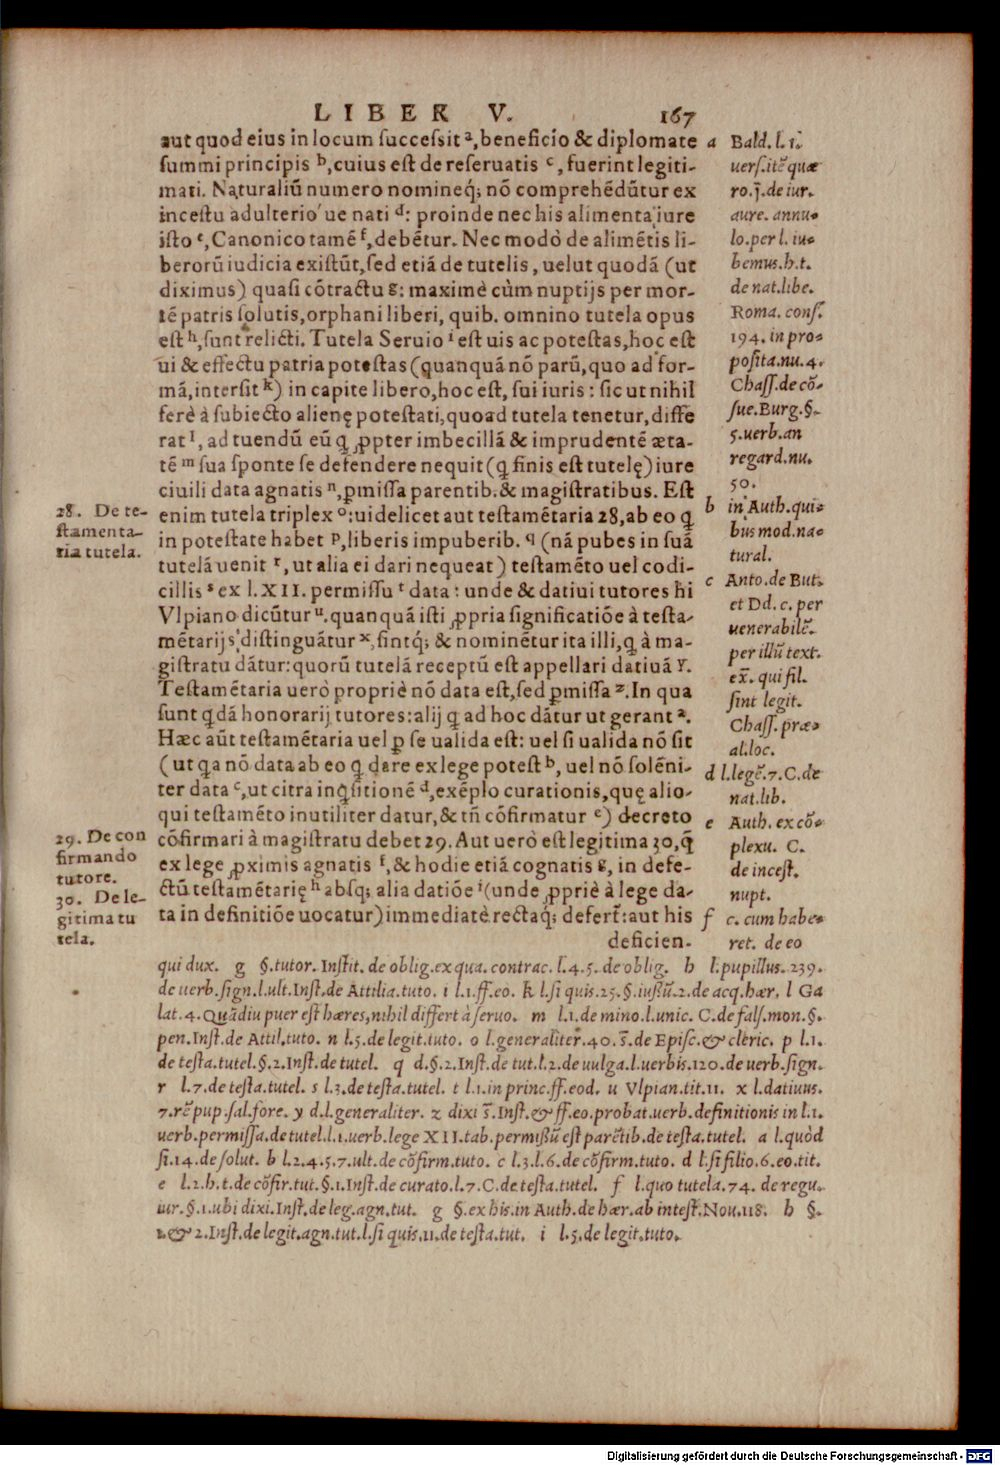 LIBER V. 167
aut quod eius in locum ſucceſsit ᵃ, beneficio & diplomate
ſummi principis ᵇ, cuius eſt de reſeruatis ᶜ, fuerint legiti-
mati. Naturaliũ numero nomineq́; nõ comprehẽdũtur ex
inceſtu adulterio ue nati ᵈ: proinde nec his alimenta iure
iſto ᵉ, Canonico tamẽ ᶠ, debẽtur. Nec modò de alimẽtis li-
berorũ iudicia exiſtũt, ſed etiã de tutelis, uelut quodã (ut
diximus) quaſi cõtractu ᵍ: maximè cùm nuptijs per mor-
tẽ patris ſolutis, orphani liberi, quib. omnino tutela opus
eſt ʰ, ſunt relicti. Tutela Seruio ⁱ eſt uis ac poteſtas, hoc eſt
ui & effectu patria poteſtas (quanquã nõ parũ, quo ad for-
mã, interſit ᵏ) in capite libero, hoc eſt, ſui iuris: ſic ut nihil
ferè à ſubiecto alienę poteſtati, quoad tutela tenetur, diffe
rat ˡ, ad tuendũ eũ q̃ ꝓpter imbecillã & imprudentẽ æta-
tẽ ᵐ ſua ſponte ſe defendere nequit (q̃ finis eſt tutelę) iure
ciuili data agnatis ⁿ, ꝑmiſſa parentib. & magiſtratibus. Eſt
enim tutela triplex ᵒ: uidelicet aut teſtamẽtaria 28, ab eo q̃
in poteſtate habet ᵖ, liberis impuberib. q (nã pubes in ſuã
tutelã uenit ʳ, ut alia ei dari nequeat) teſtamẽto uel codi-
cillis ˢ ex l. XII. permiſſu ᵗ data: unde & datiui tutores hi
Vlpiano dicũtur ᵘ. quanquã iſti ꝓpria ſignificatiõe à teſta-
mẽtarijs diſtinguãtur ˣ, ſintq́; & nominẽtur ita illi, q̃ à ma-
giſtratu dãtur: quorũ tutelã receptũ eſt appellari datiuã ʸ.
Teſtamẽtaria uerò propriè nõ data eſt, ſed ꝑmiſſa ᶻ. In qua
ſunt q̃dã honorarij tutores: alij q̃ ad hoc dãtur ut gerant ᵃ.
Hæc aũt teſtamẽtaria uel ꝑ ſe ualida eſt: uel ſi ualida nõ ſit
(ut q̃a nõ data ab eo q̃ dare ex lege poteſt ᵇ, uel nõ ſolẽni-
ter data ᶜ, ut citra inq̃ſitionẽ ᵈ, exẽplo curationis, quę alio-
qui teſtamẽto inutiliter datur, & tñ cõfirmatur ᵉ) decreto
cõfirmari à magiſtratu debet 29. Aut uerò eſt legitima 30, q̃
ex lege ꝓximis agnatis ᶠ, & hodie etiã cognatis ᵍ, in defe-
ctũ teſtamẽtarię ʰ abſq; alia datiõe ⁱ (unde ꝓpriè à lege da-
ta in definitiõe uocatur) immediatè rectaq́; defert̃: aut his
deficien-
28. De te-
ſtamenta-
ria tutela.
29. De con
firmando
tutore.
30. De le-
gitima tu
tela.
a Bald. l. 1.
uerſ. itẽ quæ
ro. j̃. de iur.
aure. annu-
lo. per l. iu-
bemus. h. t.
de nat. libe.
Roma. conſ.
194. in pro-
poſita. nu. 4.
Chaſſ. de cõ-
ſue. Burg. §.
5. uerb. an
regard. nu.
50.
b in Auth. qui-
bus mod. na-
tural.
c Anto. de But.
et Dd. c. per
uenerabilẽ.
per illũ text.
ex̃. qui fil.
ſint legit.
Chaſſ. præ-
al. loc.
d l. legẽ. 7. C. de
nat. lib.
e Auth. ex cõ-
plexu. C.
de inceſt.
nupt.
f c. cum habe-
ret. de eo
qui dux. g §. tutor. Inſtit. de oblig. ex qua. contrac. l. 4. 5. de oblig. h l. pupillus. 239.
de uerb. ſign. l. ult. Inſt. de Attilia. tuto. i l. 1. ff. eo. k l. ſi quis. 25. §. iuſſũ. 2. de acq. hær. l Ga
lat. 4. Quãdiu puer eſt hæres, nihil differt à ſeruo. m l. 1. de mino. l. unic. C. de falſ. mon. §.
pen. Inſt. de Attil. tuto. n l. 5. de legit. tuto. o l. generaliter. 40. s̃. de Epiſc. & cleric. p l. 1.
de teſta. tutel. §. 2. Inſt. de tutel. q d. §. 2. Inſt. de tut. l. 2. de uulga. l. uerbis. 120. de uerb. ſign.
r l. 7. de teſta. tutel. s l. 3. de teſta. tutel. t l. 1. in princ. ff. eod. u Vlpian. tit. 11. x l. datiuus.
7. rẽ pup. ſal. fore. y d. l. generaliter. z dixi s̃. Inſt. & ff. eo. probat. uerb. definitionis in l. 1.
uerb. permiſſa. de tutel. l. 1. uerb. lege XII. tab. permiſſũ eſt parẽtib. de teſta. tutel. a l. quòd
ſi. 14. de ſolut. b l. 2. 4. 5. 7. ult. de cõfirm. tuto. c l. 3. l. 6. de cõfirm. tuto. d l. ſi filio. 6. eo. tit.
e l. 2. h. t. de cõfir. tut. §. 1. Inſt. de curato. l. 7. C. de teſta. tutel. f l. quo tutela. 74. de regu.
iur. §. 1. ubi dixi. Inſt. de leg. agn. tut. g §. ex his. in Auth. de hær. ab inteſt. Nou. 118. h §.
1. & 2. Inſt. de legit. agn. tut. l. ſi quis. 11. de teſta. tut. i l. 5. de legit. tuto.
Digitalisierung gefördert durch die Deutsche Forschungsgemeinschaft - DFG